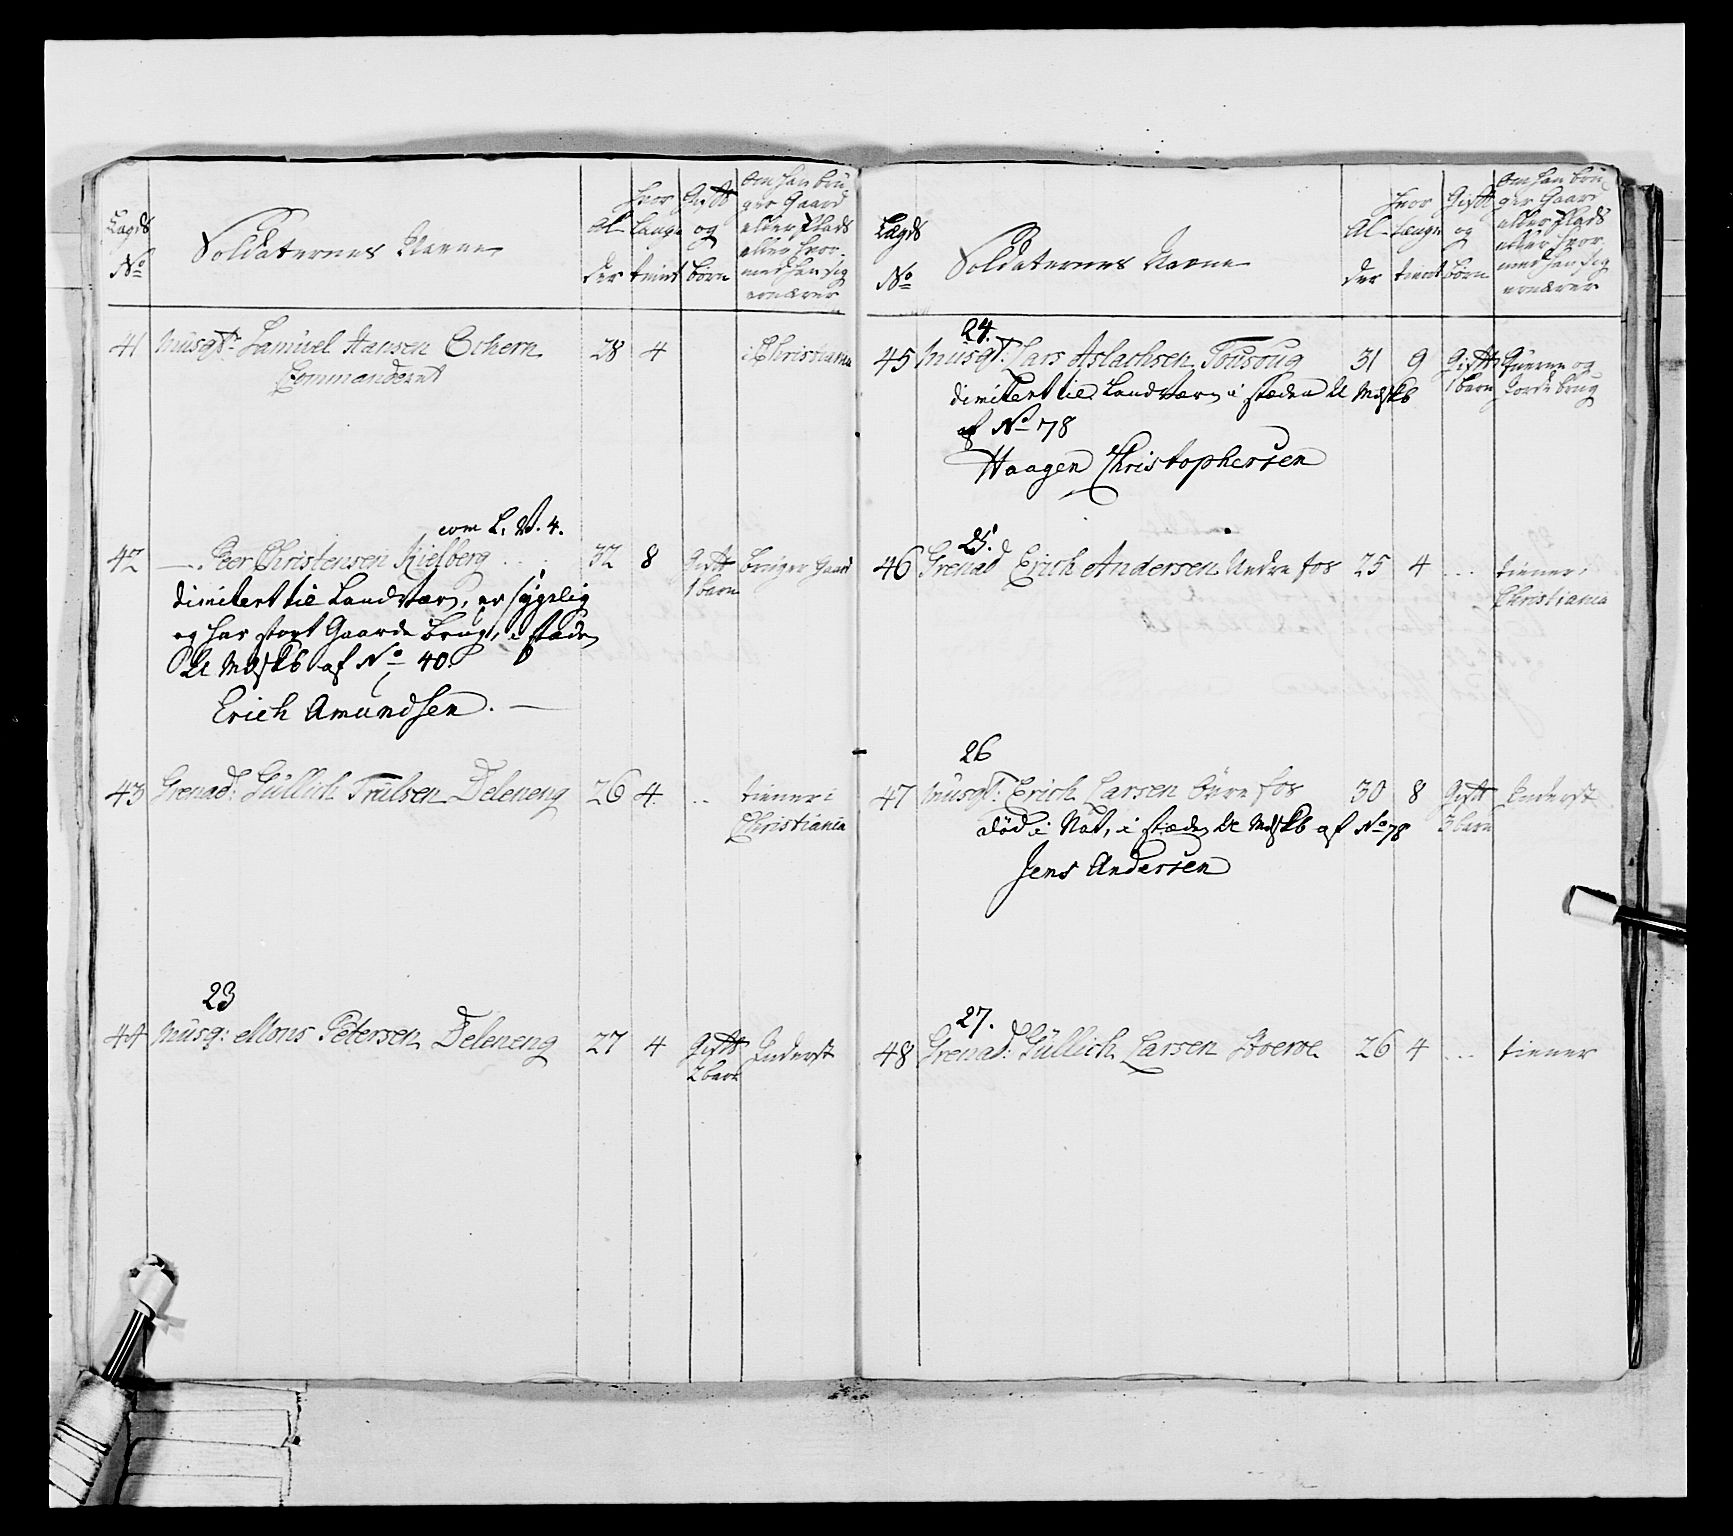 Lægds
No
Soldaternes Navne
Al-
der
hvor
længe
tient
Gift
og
børn
om han bru-
ger Gaard
eller Plads
eller hvor-
med han sig
ernærer
41 Musqt. Samuel Hansen Ochern 28 4 i Christiania
Commanderet
com L. V. 4.
42 — Peer Christensen Kielberg 32 8 Gift bruger Gaard
1 barn
dimitert til Landværn, er sygelig
og har stort Gaards brug, i stæden
U Mdskb af No 40.
Erich Amundsen. —
43 Grenad: Gullich Trulsen Deleneng 26 4 .. tiener i
Christiania
23
44 Musq: Mons Petersen Deleneng 27 4 Gift Inderst
2 barn
Lægds
No
Soldaternes Navne
Al-
der
hvor
længe
tient
Gift
og
børn
om han bru-
ger Gaard
eller Plads
eller hvor-
med han sig
ernærer
24.
45 Musqt: Lars Aslachsen Tousoug 31 9 Gift Qverne og
1 barn Jordebrug
dimitert til Landværn i stæden U Mdskb
af No 78
Haagen Christophersen
25.
46 Grenad Erich Andersen Undre fos 25 4 ... tiener i
Christiania
26
47 Musqt: Erich Larsen fos 30 8 Gift Inderst
3 barn
død i Nat, i stæden U Mdskb af No 78
Jens Andersen
27.
48 Grenad: Gullich Larsen 26 4 ... tiener